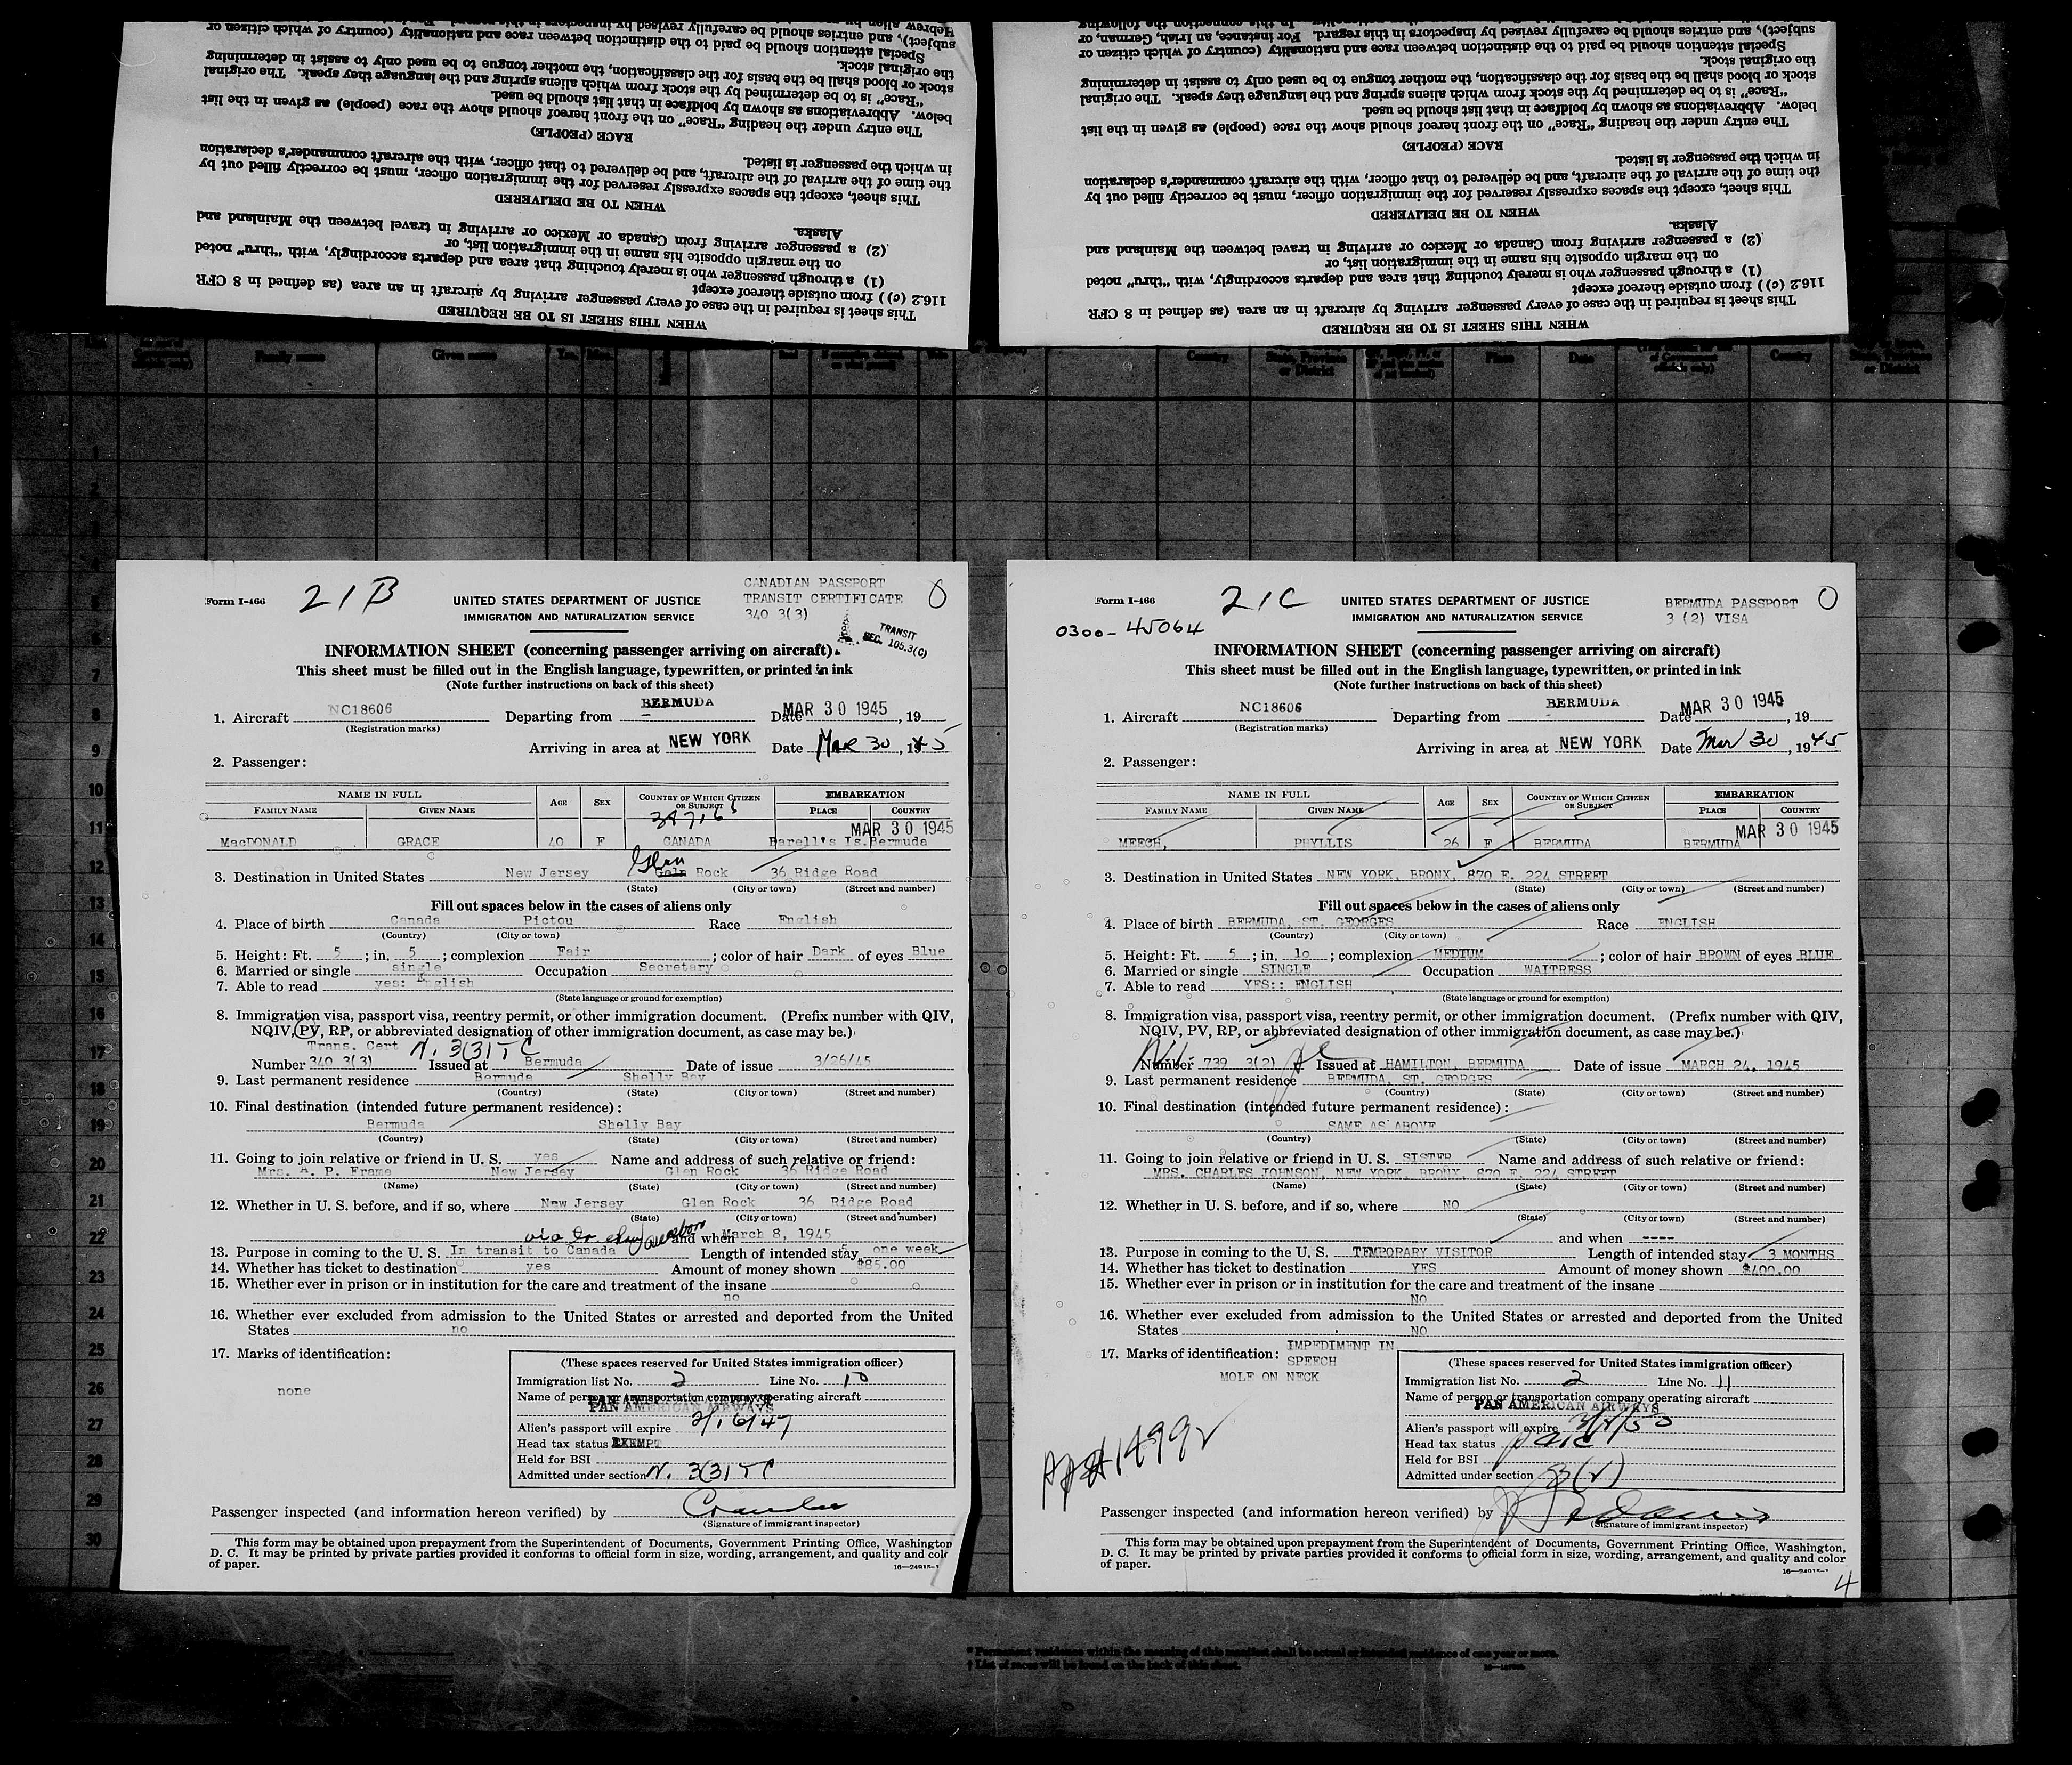 WHEN THIS SHEET IS TO BE REQUIRED
This sheet is required in the case of every passenger arriving by aircraft in an area (as defined in 8 CFR
116.2 (c)) from outside thereof except
(1) a through passenger who is merely touching that area and departs accordingly, with "thru" noted
on the margin opposite his name in the immigration list, or
(2) a passenger arriving from Canada or Mexico or arriving in travel between the Mainland and
Alaska.
WHEN TO BE DELIVERED
This sheet, except the spaces expressly reserved for the immigration officer, must be correctly filled out by
the time of the arrival of the aircraft, and be delivered to that officer, with the aircraft commander's declaration
in which the passenger is listed.
RACE (PEOPLE)
The entry under the heading "Race" on the front hereof should show the race (people) as given in the list
below. Abbreviations as shown by boldface in that list should be used.
"Race" is to be determined by the stock from which aliens spring and the language they speak. The original
stock or blood shall be the basis for the classification, the mother tongue to be used only to assist in determining
the original stock.
Special attention should be paid to the distinction between race and nationality (country of which citizen or
subject), and entries should be carefully revised by inspectors in this regard.
WHEN THIS SHEET IS TO BE REQUIRED
This sheet is required in the case of every passenger arriving by aircraft in an area (as defined in 8 CFR
116.2 (c)) from outside thereof except
(1) a through passenger who is merely touching that area and departs accordingly, with "thru" noted
on the margin opposite his name in the immigration list, or
(2) a passenger arriving from Canada or Mexico or arriving in travel between the Mainland and
Alaska.
WHEN TO BE DELIVERED
This sheet, except the spaces expressly reserved for the immigration officer, must be correctly filled out by
the time of the arrival of the aircraft, and be delivered to that officer, with the aircraft commander's declaration
in which the passenger is listed.
RACE (PEOPLE)
The entry under the heading "Race" on the front hereof should show the race (people) as given in the list
below. Abbreviations as shown by boldface in that list should be used.
"Race" is to be determined by the stock from which aliens spring and the language they speak. The original
stock or blood shall be the basis for the classification, the mother tongue to be used only to assist in determining
the original stock.
Special attention should be paid to the distinction between race and nationality (country of which citizen or
subject), and entries should be carefully revised by inspectors in this regard. For instance, an Irish, German, or
Family name Given name Country State, Province or District Place Date Country State, Province or District
Form I-466 21B UNITED STATES DEPARTMENT OF JUSTICE CANADIAN PASSPORT 0
IMMIGRATION AND NATURALIZATION SERVICE TRANSIT CERTIFICATE
340 3(3)
TRANSIT
SEC. 105.3(C)
INFORMATION SHEET (concerning passenger arriving on aircraft)
This sheet must be filled out in the English language, typewritten, or printed in ink
(Note further instructions on back of this sheet)
1. Aircraft NC18606 Departing from BERMUDA Date MAR 30 1945, 19
(Registration marks)
Arriving in area at NEW YORK Date Mar 30, 1945
2. Passenger:
NAME IN FULL AGE SEX COUNTRY OF WHICH CITIZEN OR SUBJECT EMBARKATION
FAMILY NAME GIVEN NAME PLACE COUNTRY
MAR 30 1945
MacDONALD GRACE 40 F CANADA Darell's Is. Bermuda
3. Destination in United States New Jersey Glen Rock 36 Ridge Road
(State) (City or town) (Street and number)
Fill out spaces below in the cases of aliens only
4. Place of birth Canada Pictou Race English
(Country) (City or town)
5. Height: Ft. 5; in. 5; complexion Fair; color of hair Dark of eyes Blue
6. Married or single single Occupation Secretary
7. Able to read yes: English
(State language or ground for exemption)
8. Immigration visa, passport visa, reentry permit, or other immigration document. (Prefix number with QIV,
NQIV, PV, RP, or abbreviated designation of other immigration document, as case may be.)
Trans. Cert N. 3(3) TC
Number 340 3(3) Issued at Bermuda Date of issue 3/26/45
9. Last permanent residence Bermuda Shelly Bay
(Country) (State) (City or town) (Street and number)
10. Final destination (intended future permanent residence):
Bermuda Shelly Bay
(Country) (State) (City or town) (Street and number)
11. Going to join relative or friend in U. S. yes Name and address of such relative or friend:
Mrs. A. P. Frame New Jersey Glen Rock 36 Ridge Road
(Name) (State) (City or town) (Street and number)
12. Whether in U. S. before, and if so, where New Jersey Glen Rock 36 Ridge Road
(State) (City or town) (Street and number)
and when March 8, 1945
13. Purpose in coming to the U. S. In transit to Canada Length of intended stay one week
14. Whether has ticket to destination yes Amount of money shown $85.00
15. Whether ever in prison or in institution for the care and treatment of the insane
no
16. Whether ever excluded from admission to the United States or arrested and deported from the United
States no
17. Marks of identification:
none
(These spaces reserved for United States immigration officer)
Immigration list No. 2 Line No. 10
Name of person or transportation company operating aircraft
PAN AMERICAN AIRWAYS
Alien's passport will expire 2/16/47
Head tax status EXEMPT
Held for BSI
Admitted under section N. 3(3) TC
Passenger inspected (and information hereon verified) by
(Signature of immigrant inspector)
This form may be obtained upon prepayment from the Superintendent of Documents, Government Printing Office, Washington
D. C. It may be printed by private parties provided it conforms to official form in size, wording, arrangement, and quality and color
of paper.
16—24915-1
Form I-466 21C UNITED STATES DEPARTMENT OF JUSTICE BERMUDA PASSPORT 0
0300-45064 IMMIGRATION AND NATURALIZATION SERVICE 3 (2) VISA
INFORMATION SHEET (concerning passenger arriving on aircraft)
This sheet must be filled out in the English language, typewritten, or printed in ink
(Note further instructions on back of this sheet)
1. Aircraft NC18606 Departing from BERMUDA Date MAR 30 1945, 19
(Registration marks)
Arriving in area at NEW YORK Date Mar 30, 1945
2. Passenger:
NAME IN FULL AGE SEX COUNTRY OF WHICH CITIZEN OR SUBJECT EMBARKATION
FAMILY NAME GIVEN NAME PLACE COUNTRY
MAR 30 1945
MEECH, PHYLLIS 26 F BERMUDA BERMUDA
3. Destination in United States NEW YORK, BRONX, 870 E. 224 STREET
(State) (City or town) (Street and number)
Fill out spaces below in the cases of aliens only
4. Place of birth BERMUDA, ST. GEORGES Race ENGLISH
(Country) (City or town)
5. Height: Ft. 5; in. 10; complexion MEDIUM; color of hair BROWN of eyes BLUE
6. Married or single SINGLE Occupation WAITRESS
7. Able to read YES:: ENGLISH
(State language or ground for exemption)
8. Immigration visa, passport visa, reentry permit, or other immigration document. (Prefix number with QIV,
NQIV, PV, RP, or abbreviated designation of other immigration document, as case may be.)
Number 739 3(2) Issued at HAMILTON, BERMUDA Date of issue MARCH 24, 1945
9. Last permanent residence BERMUDA, ST. GEORGES
(Country) (State) (City or town) (Street and number)
10. Final destination (intended future permanent residence):
SAME AS ABOVE
(Country) (State) (City or town) (Street and number)
11. Going to join relative or friend in U. S. SISTER Name and address of such relative or friend:
MRS. CHARLES JOHNSON, NEW YORK, BRONX, 870 E. 224 STREET
(Name) (State) (City or town) (Street and number)
12. Whether in U. S. before, and if so, where NO
(State) (City or town) (Street and number)
and when ----
13. Purpose in coming to the U. S. TEMPORARY VISITOR Length of intended stay 3 MONTHS
14. Whether has ticket to destination YES Amount of money shown $400.00
15. Whether ever in prison or in institution for the care and treatment of the insane
NO
16. Whether ever excluded from admission to the United States or arrested and deported from the United
States NO
17. Marks of identification: IMPEDIMENT IN
SPEECH
MOLE ON NECK
(These spaces reserved for United States immigration officer)
Immigration list No. 2 Line No. 11
Name of person or transportation company operating aircraft
PAN AMERICAN AIRWAYS
Alien's passport will expire
Head tax status paid
Held for BSI
Admitted under section 3(2)
Passenger inspected (and information hereon verified) by
(Signature of immigrant inspector)
This form may be obtained upon prepayment from the Superintendent of Documents, Government Printing Office, Washington,
D. C. It may be printed by private parties provided it conforms to official form in size, wording, arrangement, and quality and color
of paper.
16—24915-1
4
* Permanent residence within the meaning of this manifest shall be actual or intended residence of one year or more.
† List of races will be found on the back of this sheet.